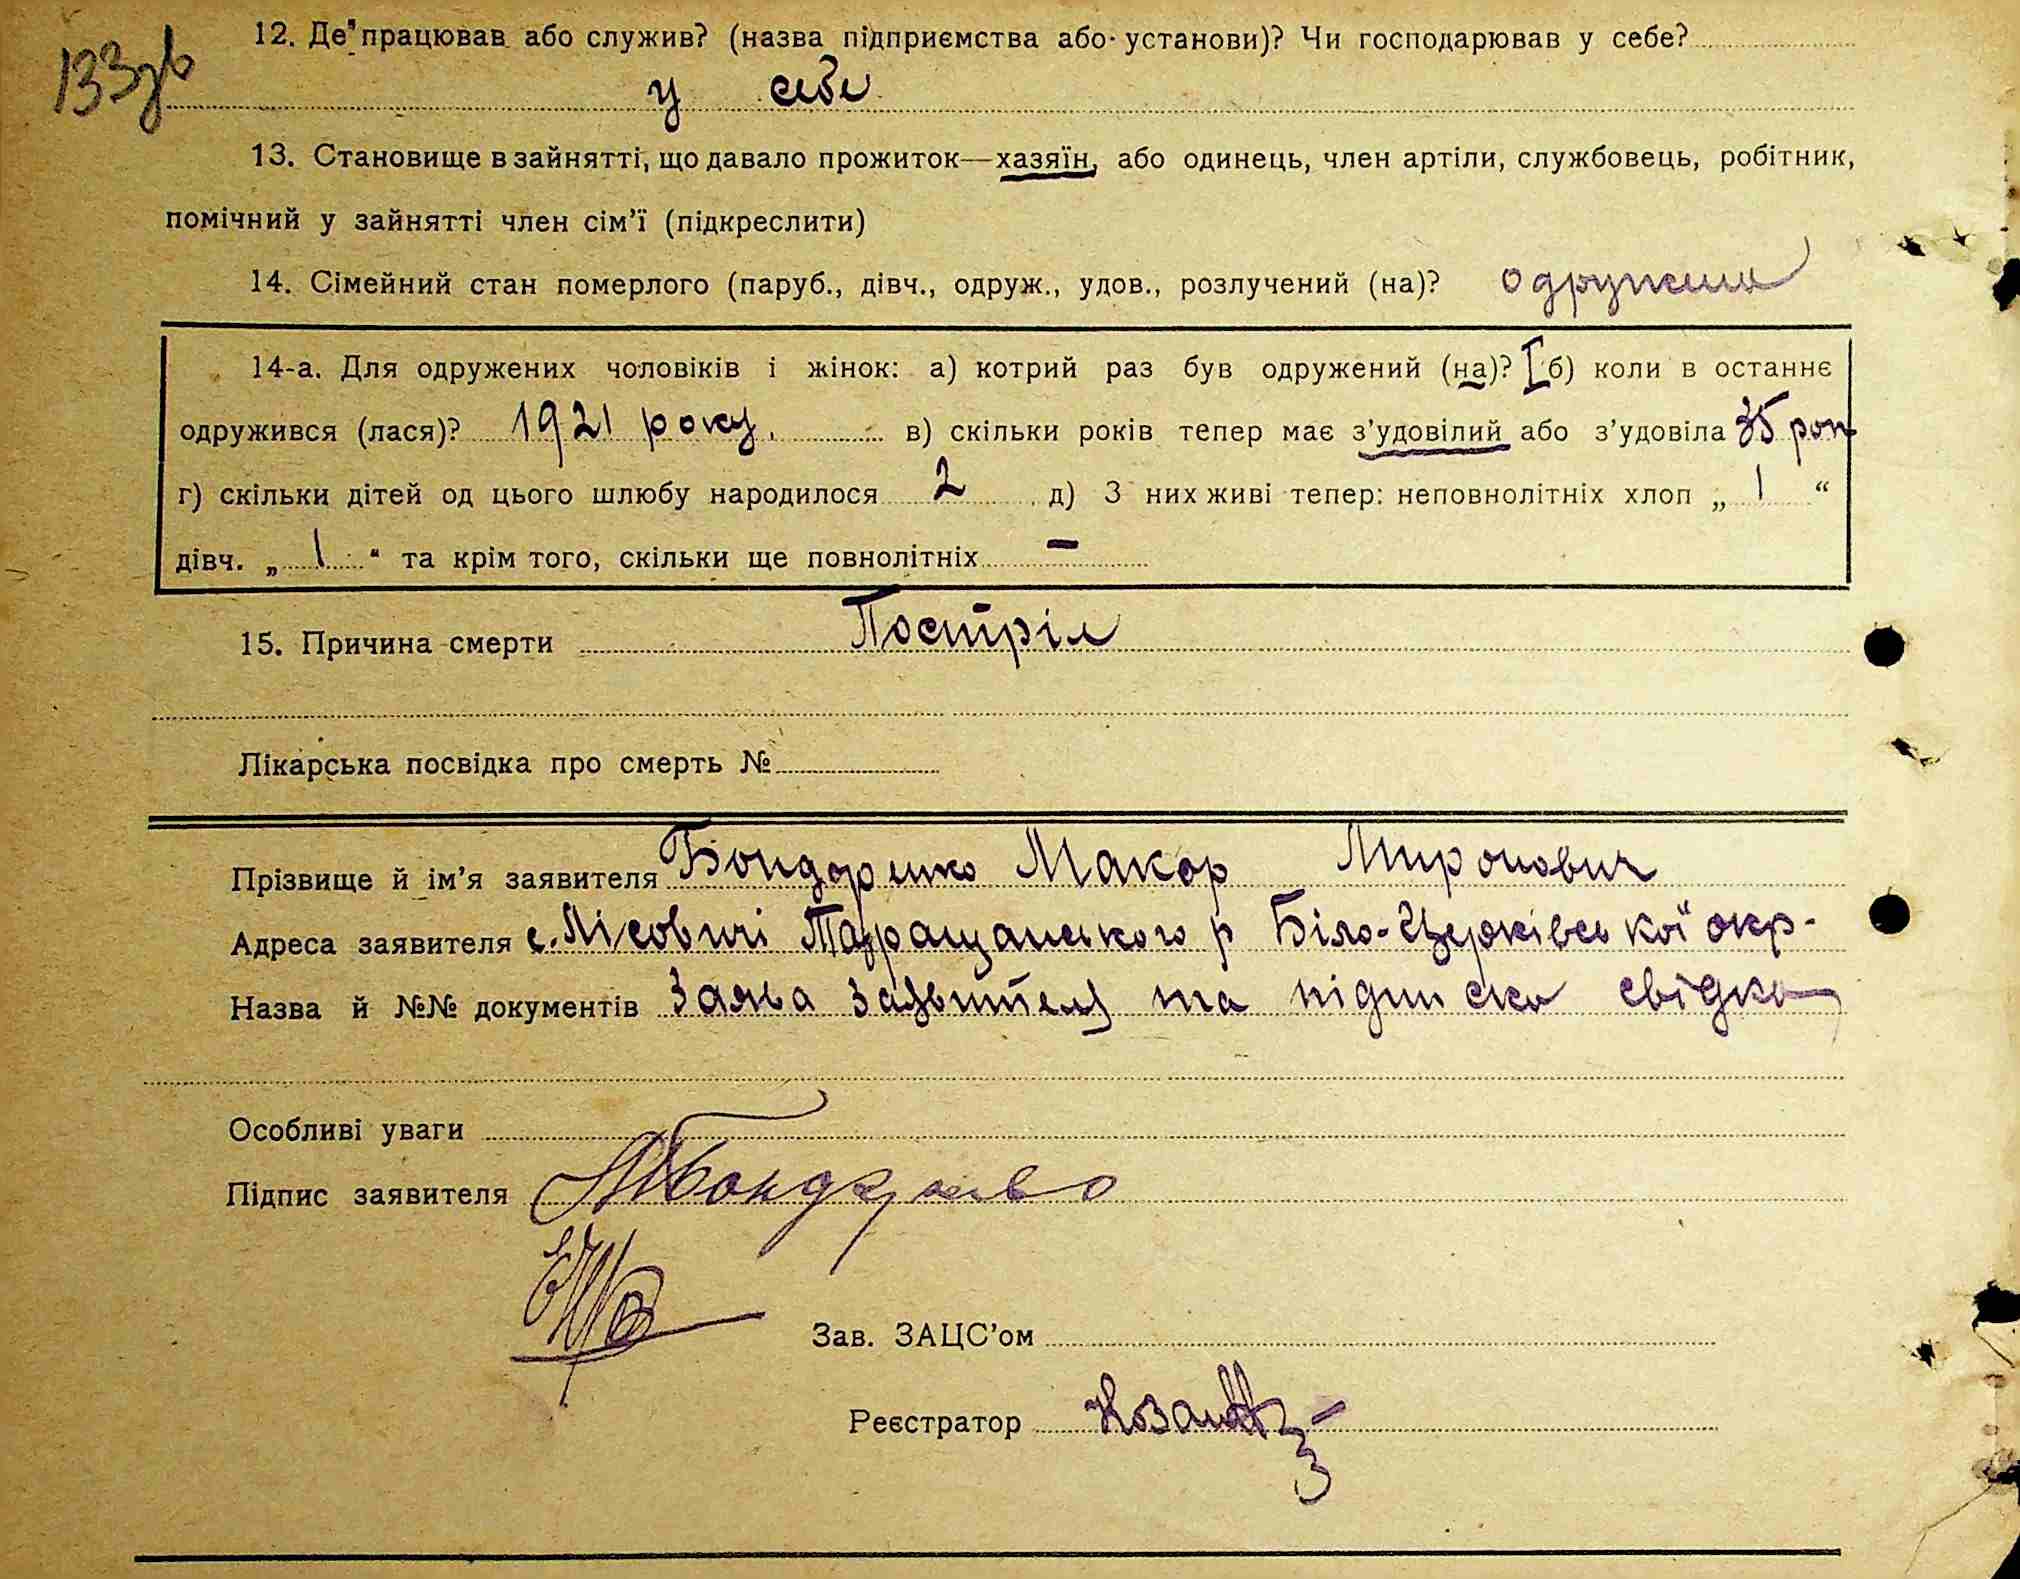 133зв
12. Де працював або служив? (назва підприємства або установи)? Чи господарював у себе?
у себе
13. Становище в зайнятті, що давало прожиток—хазяїн, або одинець, член артіли, службовець, робітник,
помічний у зайнятті член сім'ї (підкреслити)
14. Сімейний стан померлого (паруб., дівч., одруж., удов., розлучений (на)? одружена
14-а. Для одружених чоловіків і жінок: а) котрий раз був одружений (на)? I б) коли в останнє
одружився (лася)? 1921 року. в) скільки років тепер має з'удовілий або з'удовіла 35 рок
г) скільки дітей од цього шлюбу народилося 2 д) З них живі тепер: неповнолітніх хлоп „ 1 “
дівч. „ 1 “ та крім того, скільки ще повнолітніх —
15. Причина смерти Постріл
Лікарська посвідка про смерть №
Прізвище й ім'я заявителя Бондаренко Макар Миронович
Адреса заявителя с. Лісовичі Таращанського р Біло-Церківської окр-
Назва й №№ документів Заява заявителя та підписка свідка
Особливі уваги
Підпис заявителя МБондаренко
Зав. ЗАЦС'ом
Реєстратор